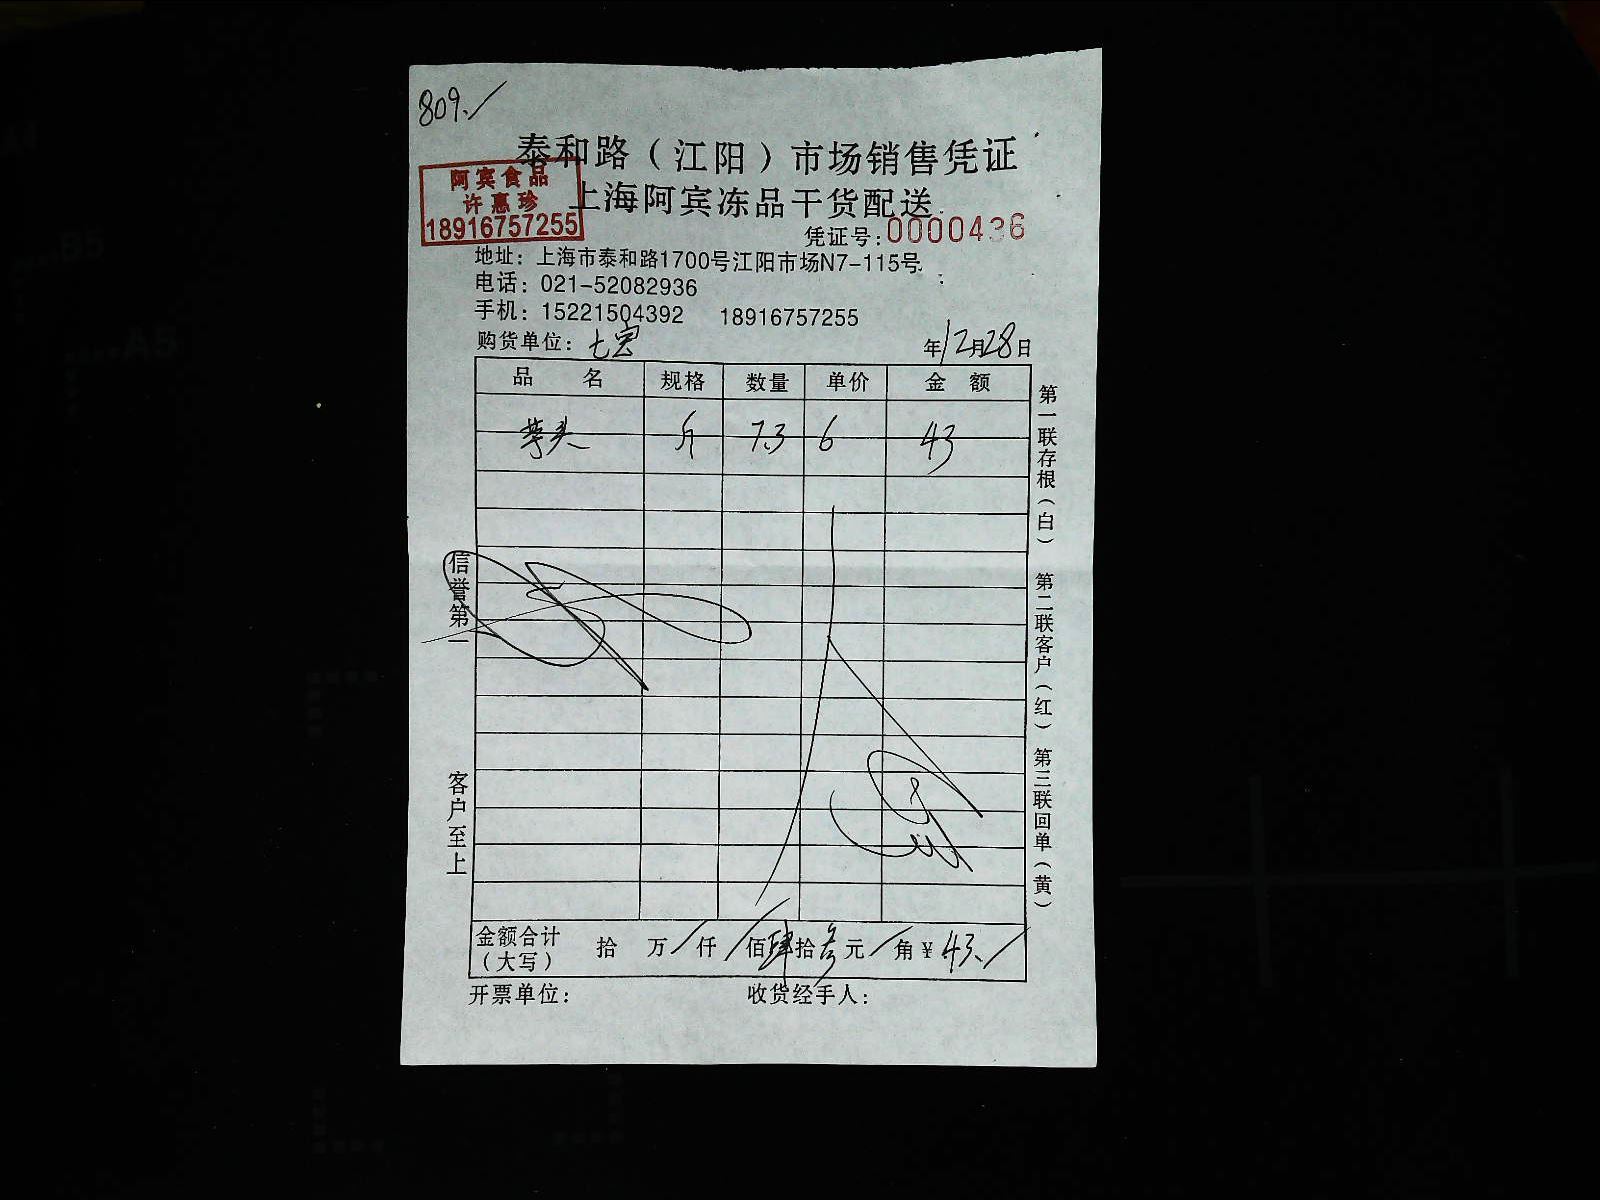 809.
泰和路（江阳）市场销售凭证
阿宾食品
许惠珍
18916757255
上海阿宾冻品干货配送
凭证号:0000436
地址：上海市泰和路1700号江阳市场N7-115号
电话：021-52082936
手机：15221504392 18916757255
购货单位：七宝 年12月28日
品 名 规格 数量 单价 金 额
芋头 斤 7.3 6 43
第一联存根（白） 第二联客户（红） 第三联回单（黄）
信誉第一 客户至上
金额合计（大写） 拾 万 仟 佰肆拾叁元 角¥43.
开票单位： 收货经手人：